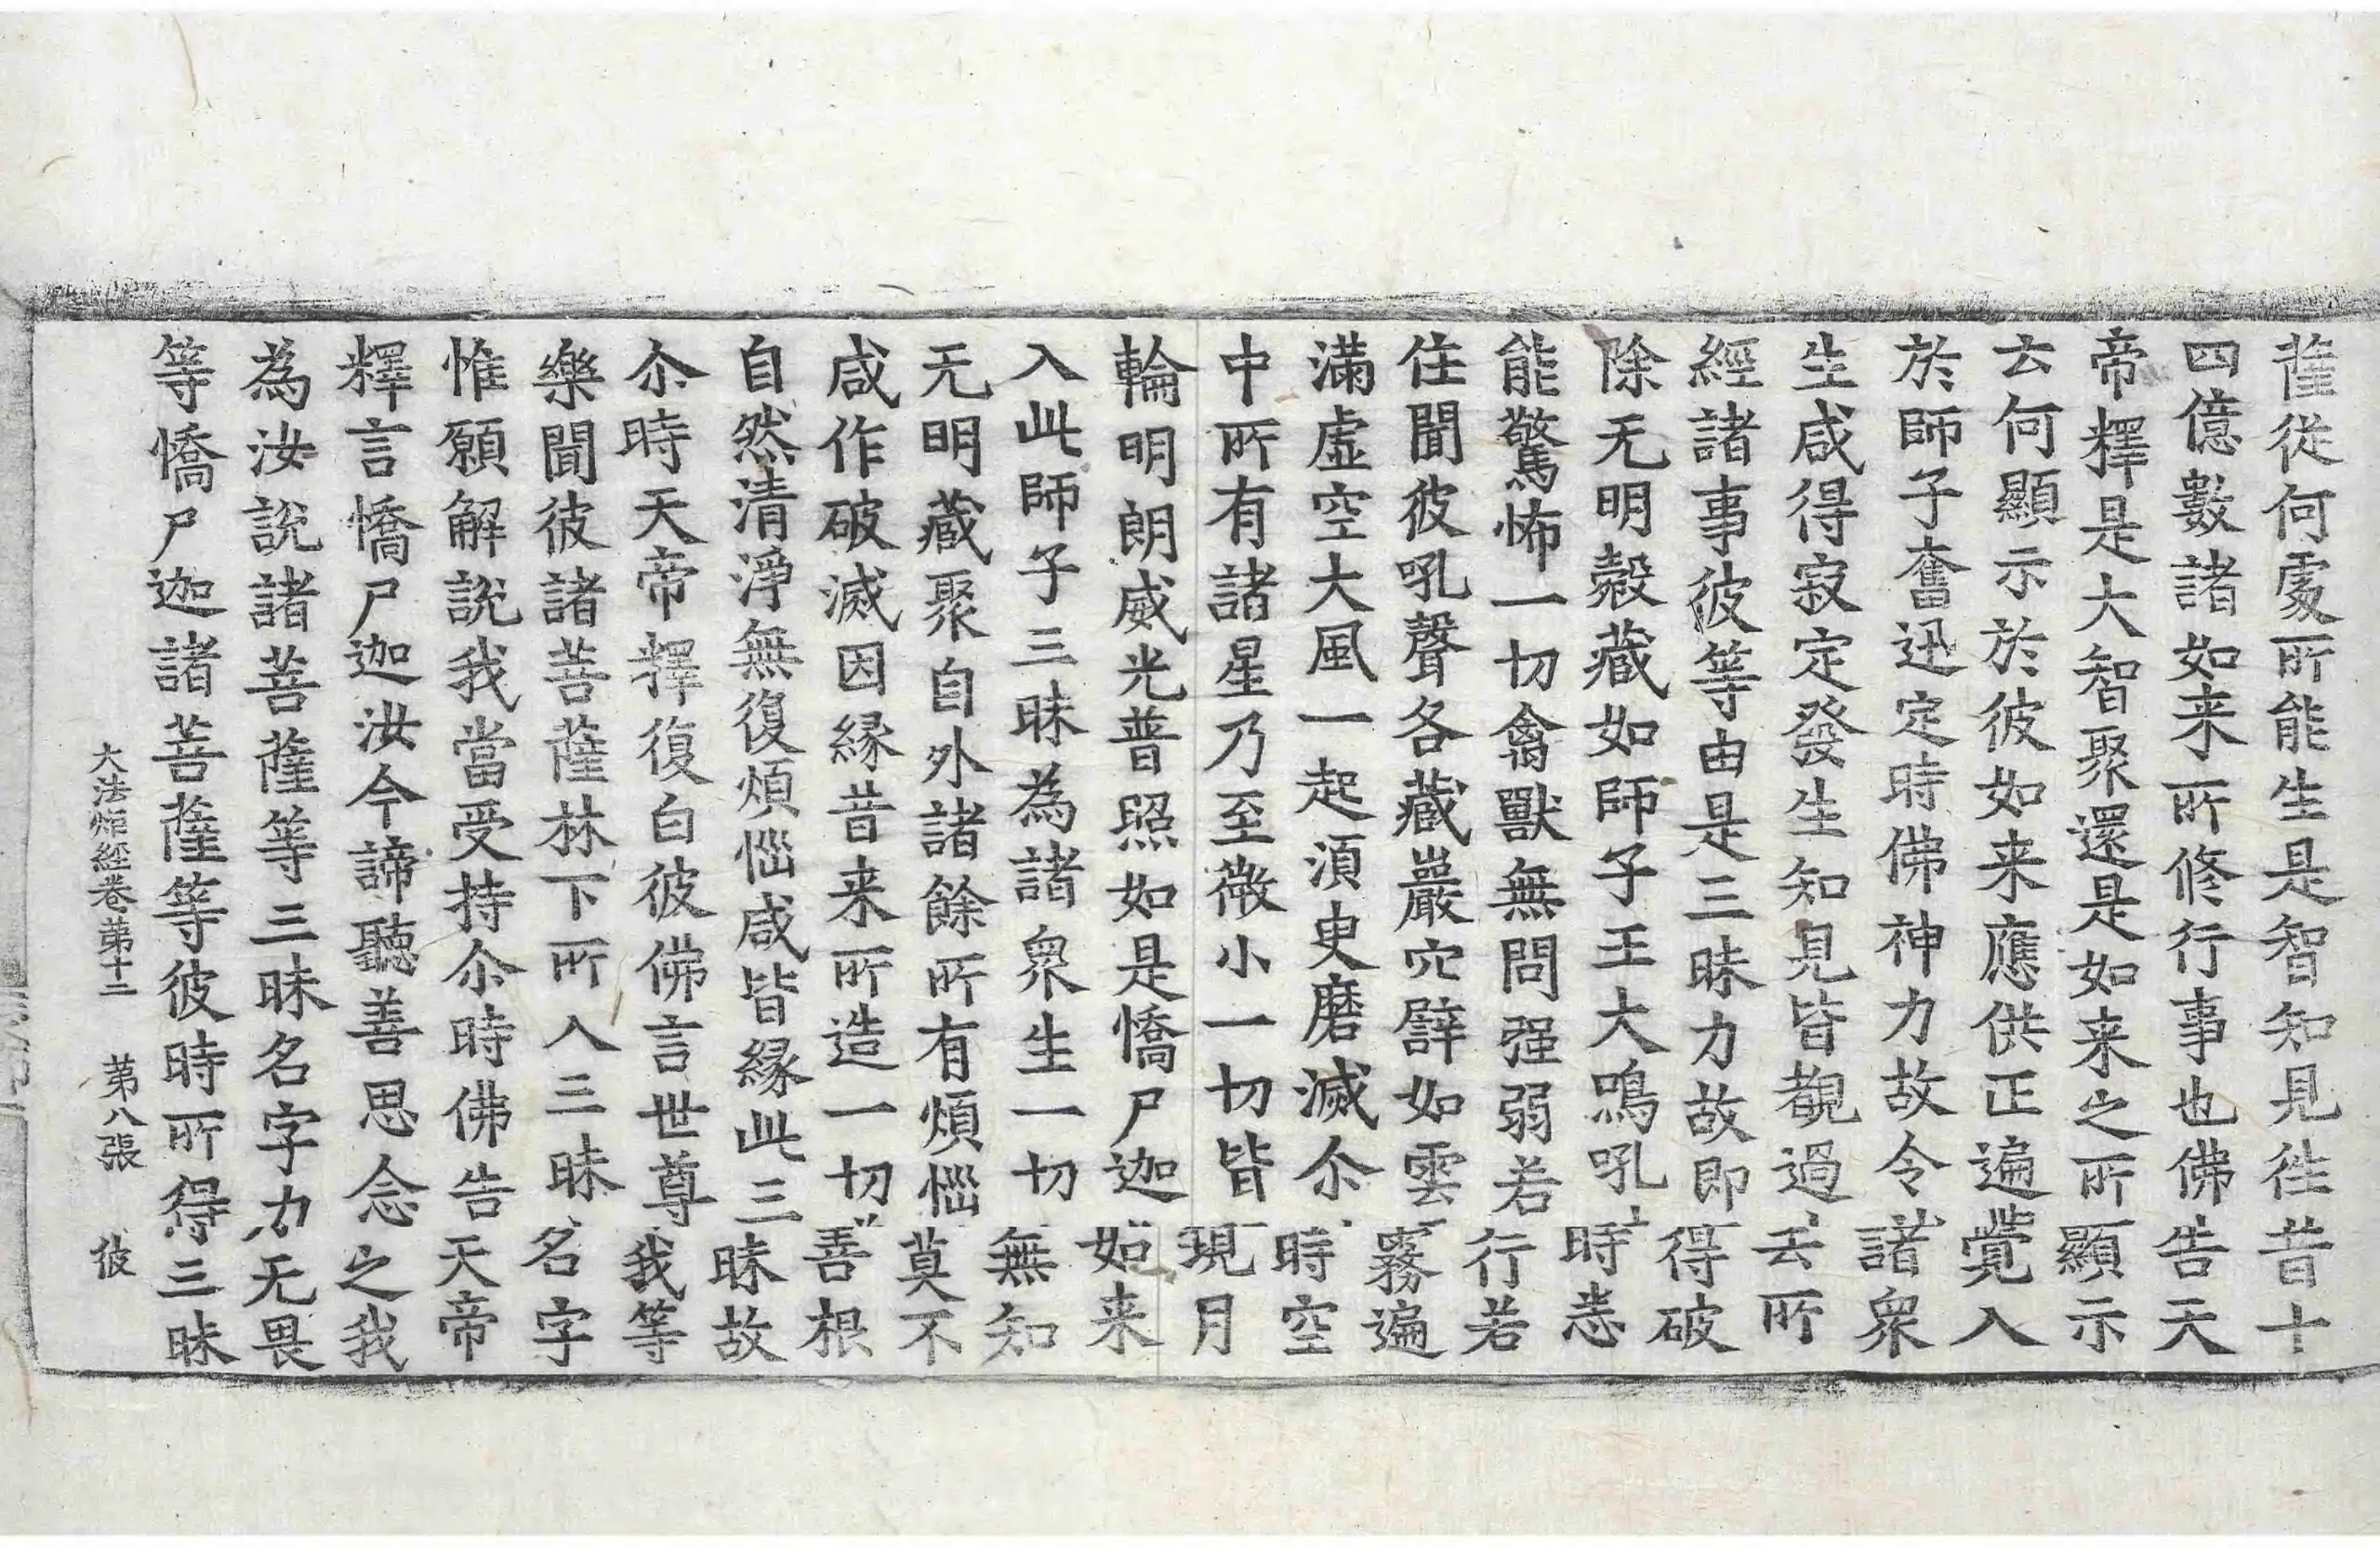 薩從何處所能生是智知見徃昔十
四億數諸如来所修行事也佛告天
帝釋是大智聚還是如来之所顯示
云何顯示於彼如来應供正遍覺入
於師子奮迅定時佛神力故令諸衆
生咸得寂定發生知見皆覩過去所
經諸事彼等由是三昧力故即得破
除无明㲉藏如師子王大鳴吼時恙
能驚怖一切禽獸無問强弱若行若
住聞彼吼聲各藏巖穴譬如雲霧遍
滿虛空大風一起湏史磨滅尒時空
中所有諸星乃至微小一切皆現月
輪明朗威光普照如是憍尸迦如来
入此師子三昧為諸衆生一切無知
无明藏聚自外諸餘所有煩惱莫不
咸作破滅因縁昔来所造一切善根
自然清淨無復煩惱咸皆縁此三昧故
尒時天帝釋復白彼佛言世尊我等
樂聞彼諸菩薩林下所入三昧名字
惟願解說我當受持尒時佛告天帝
釋言憍尸迦汝今諦聽善思念之我
為汝說諸菩薩等三昧名字力无畏
等憍尸迦諸菩薩等彼時所得三昧
大法炬経卷苐十二 苐八張 彼